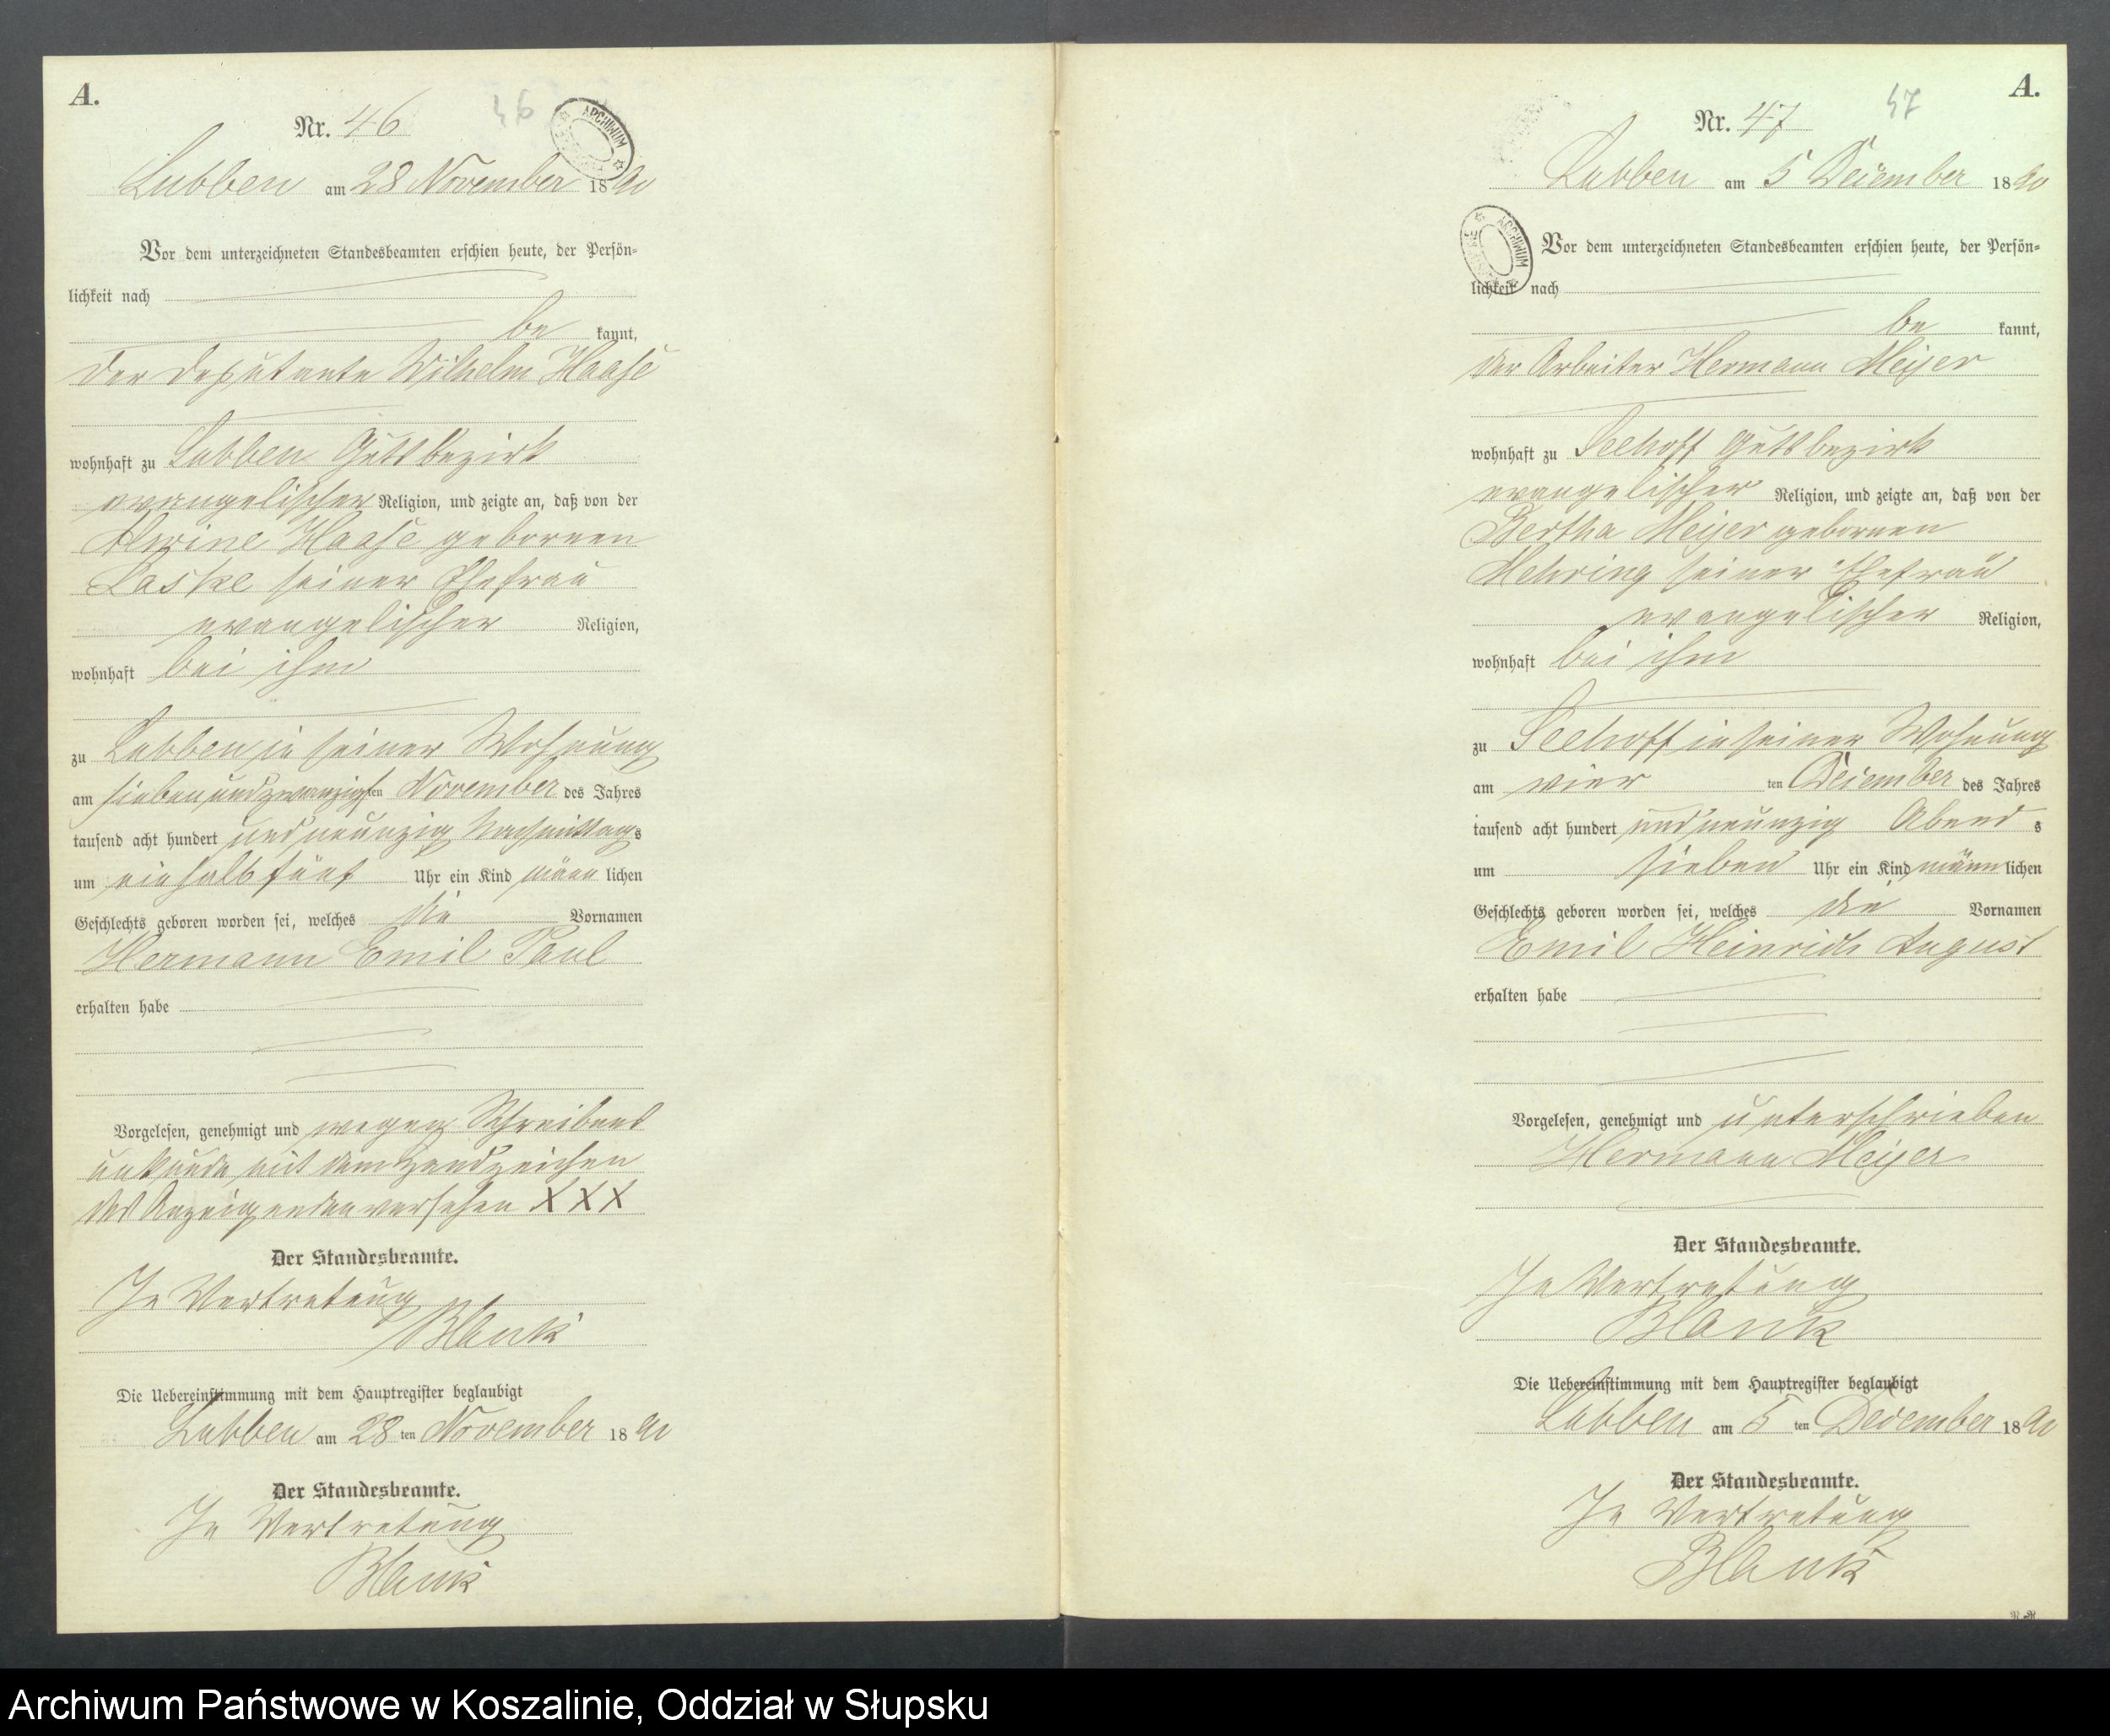 A.
Nr. 46
46
ARCHIWUM
Lubben am 28 November 1890
Vor dem unterzeichneten Standesbeamten erschien heute, der Persön=
lichkeit nach
be kannt,
der Deputante Wilhelm Haase
wohnhaft zu Lubben Gutsbezirk
evangelischer Religion, und zeigte an, daß von der
Alwine Haase geborenen
Laske seiner Ehefrau
evangelischer Religion,
wohnhaft bei ihm
zu Lubben in seiner Wohnung
am siebenundzwanzigsten November des Jahres
tausend acht hundert und neunzig Nachmittags
um einhalb fünf Uhr ein Kind männlichen
Geschlechts geboren worden sei, welches die Vornamen
Hermann Emil Paul
erhalten habe
Vorgelesen, genehmigt und wegen Schreibens
unkunde mit dem Handzeichen
des Anzeigenden versehen XXX
Der Standesbeamte.
In Vertretung
Blank
Die Uebereinstimmung mit dem Hauptregister beglaubigt
Lubben am 28ten November 1890
Der Standesbeamte.
In Vertretung
Blank
A.
Nr. 47
47
Lubben am 5 Dezember 1890
ARCHIWUM
Vor dem unterzeichneten Standesbeamten erschien heute, der Persön=
lichkeit nach
be kannt,
der Arbeiter Hermann Meyer
wohnhaft zu Seehoff Gutsbezirk
evangelischer Religion, und zeigte an, daß von der
Bertha Meyer geborenen
Mehring seiner Ehefrau
evangelischer Religion,
wohnhaft bei ihm
zu Seehoff in seiner Wohnung
am vier ten Dezember des Jahres
tausend acht hundert und neunzig Abend s
um sieben Uhr ein Kind männlichen
Geschlechts geboren worden sei, welches die Vornamen
Emil Heinrich August
erhalten habe
Vorgelesen, genehmigt und unterschrieben
Hermann Meyer
Der Standesbeamte.
In Vertretung
Blank
Die Uebereinstimmung mit dem Hauptregister beglaubigt
Lubben am 5 ten Dezember 1890
Der Standesbeamte.
In Vertretung
Blank
Archiwum Państwowe w Koszalinie, Oddział w Słupsku